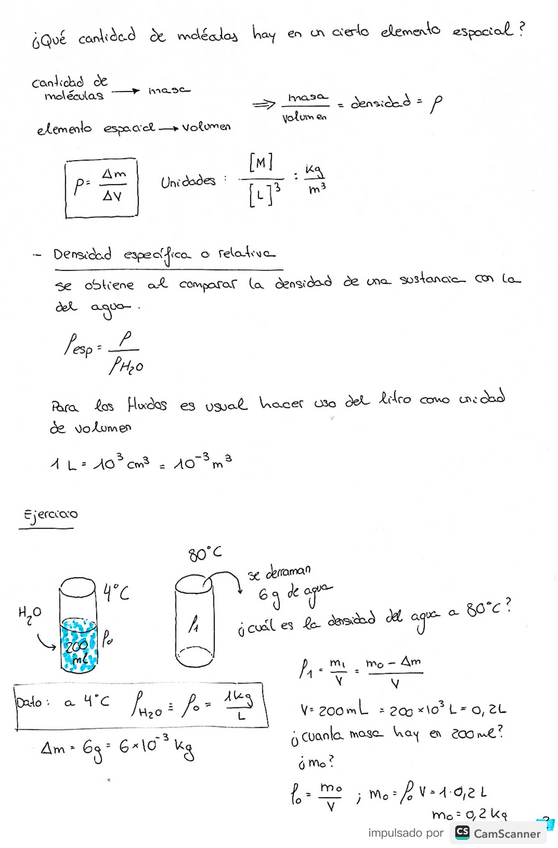 ¿Qué cantidad de moléculas hay en un cierto elemento espacial?
cantidad de moléculas → masa
elemento espacial → volumen
⇒ masa / volumen = densidad = ρ
ρ = Δm / ΔV
Unidades : [M] / [L]³ : kg / m³
- Densidad específica o relativa
se obtiene al comparar la densidad de una sustancia con la
del agua.
ρesp = ρ / ρH₂O
Para los fluidos es usual hacer uso del litro como unidad
de volumen
1 L = 10³ cm³ = 10⁻³ m³
Ejercicio
H₂O
4°C
200 ml
ρ₀
80°C
ρ₁
se derraman
6g de agua
¿cuál es la densidad del agua a 80°C?
Dato: a 4°C ρH₂O ≡ ρ₀ = 1kg / L
Δm = 6g = 6×10⁻³ kg
ρ₁ = m₁ / V = m₀ - Δm / V
V = 200mL = 200×10³ L = 0,2L
¿cuanta masa hay en 200ml?
¿m₀?
ρ₀ = m₀ / V ; m₀ = ρ₀ V = 1·0,2 L
m₀ = 0,2 kg
impulsado por CS CamScanner